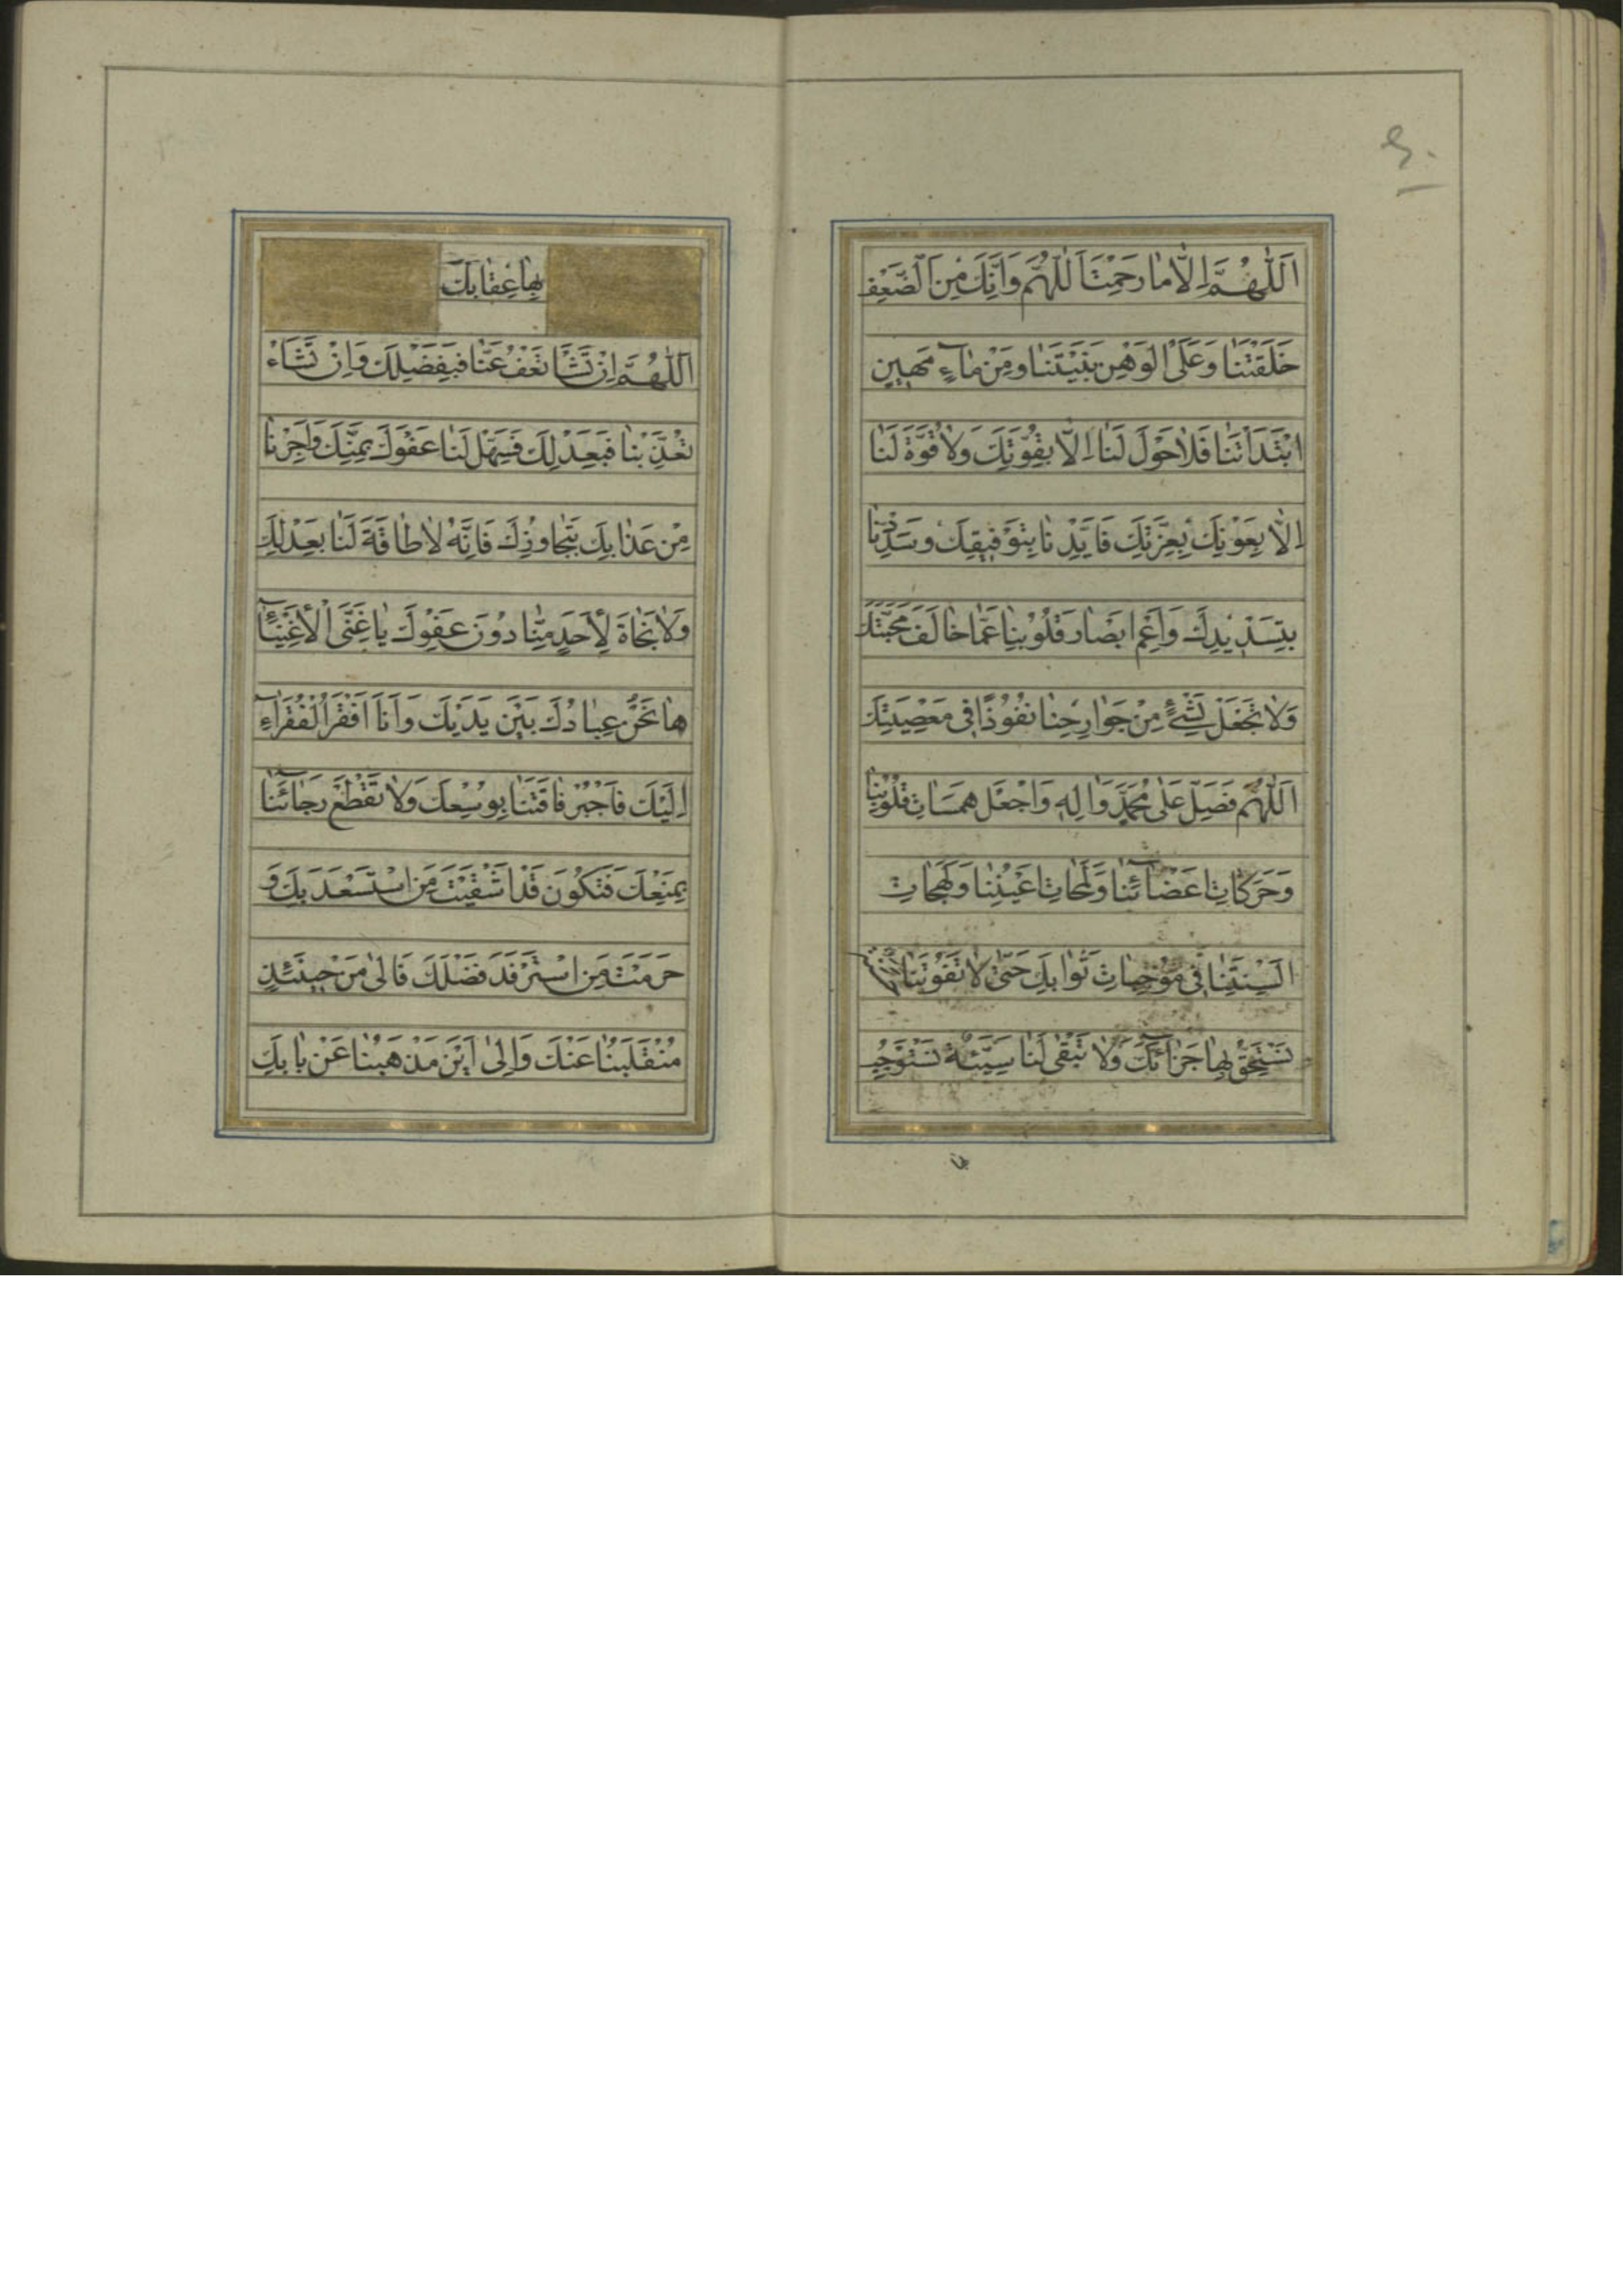 ۶۰
اَللّٰهُمَّ اِلَّا مٰا رَحِمْتَ اَللّٰهُمَّ وَاَنَّكَ مِنَ الضَّعْفِ
خَلَقْتَنٰا وَعَلَى الْوَهْنِ بَنَيْتَنٰا وَمِنْ مٰاءٍ مَهينٍ
ابْتَدَاْتَنٰا فَلاٰ حَوْلَ لَنٰا اِلّٰا بِقُوَّتِكَ وَلاٰ قُوَّةَ لَنٰا
اِلّٰا بِعَوْنِكَ بِعِزَّتِكَ فَاَيِّدْنٰا بِتَوْفيقِكَ وَسَدِّدْنٰا
بِتَسْديدِكَ وَاَعْمِ اَبْصٰارَ قُلُوْبِنٰا عَمّٰا خٰالَفَ مَحَبَّتَكَ
وَلاٰ تَجْعَلْ لِشَيْءٍ مِنْ جَوٰارِحِنٰا نُفُوْذًا في مَعْصِيَتِكَ
اَللّٰهُمَّ فَصَلِّ عَلٰى مُحَمَّدٍ وَاٰلِهِ وَاجْعَلْ هَمَسٰاتِ قُلُوْبِنٰا
وَحَرَكٰاتِ اَعْضٰائِنٰا وَلَمَحٰاتِ اَعْيُنِنٰا وَلَهَجٰاتِ
اَلْسِنَتِنٰا في مُوْجِبٰاتِ ثَوٰابِكَ حَتّٰى لاٰ تَفُوْتَنٰا
نَسْتَحِقُّ بِهٰا جَزٰائَكَ وَلاٰ تَبْقٰى لَنٰا سَيِّئَةٌ نَسْتَوْجِبُ
بِهٰا
بِهٰا عِقٰابَكَ
اَللّٰهُمَّ اِنْ تَشَأْ تَعْفُ عَنّٰا فَبِفَضْلِكَ وَاِنْ تَشَاءْ
تُعَذِّبْنٰا فَبِعَدْلِكَ فَسَهِّلْ لَنٰا عَفْوَكَ بِمَنِّكَ وَاَجِرْنٰا
مِنْ عَذٰابِكَ بِتَجٰاوُزِكَ فَاِنَّهُ لاٰ طٰاقَةَ لَنٰا بِعَدْلِكَ
وَلاٰ نَجٰاةَ لِاَحَدٍ مِنّٰا دُوْنَ عَفْوِكَ يٰا غَنِيَّ الْاَغْنِيٰاءِ
هٰا نَحْنُ عِبٰادُكَ بَيْنَ يَدَيْكَ وَاَنَا اَفْقَرُ الْفُقَرٰاءِ
اِلَيْكَ فَاجْبُرْ فٰاقَتَنٰا بِوُسْعِكَ وَلاٰ تَقْطَعْ رَجٰائَنٰا
بِمَنْعِكَ فَتَكُوْنَ قَدْ اَشْقَيْتَ مَنِ اسْتَسْعَدَ بِكَ وَ
حَرَمْتَ مَنِ اسْتَرْفَدَ فَضْلَكَ فَاِلٰى مَنْ حينَئِذٍ
مُنْقَلَبُنٰا عَنْكَ وَاِلٰى اَيْنَ مَذْهَبُنٰا عَنْ بٰابِكَ